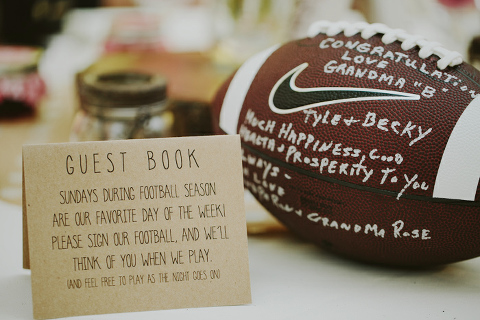 GUEST BOOK
SUNDAYS DURING FOOTBALL SEASON
ARE OUR FAVORITE DAY OF THE WEEK!
PLEASE SIGN OUR FOOTBALL, AND WE'LL
THINK OF YOU WHEN WE PLAY.
(AND FEEL FREE TO PLAY AS THE NIGHT GOES ON)
CONGRATULATIONS
LOVE
GRANDMA "B"
TYLE + BECKY
MUCH HAPPINESS, GOOD
HEALTH & PROSPERITY TO YOU
ALWAYS-
LOVE
GRANDMA ROSE